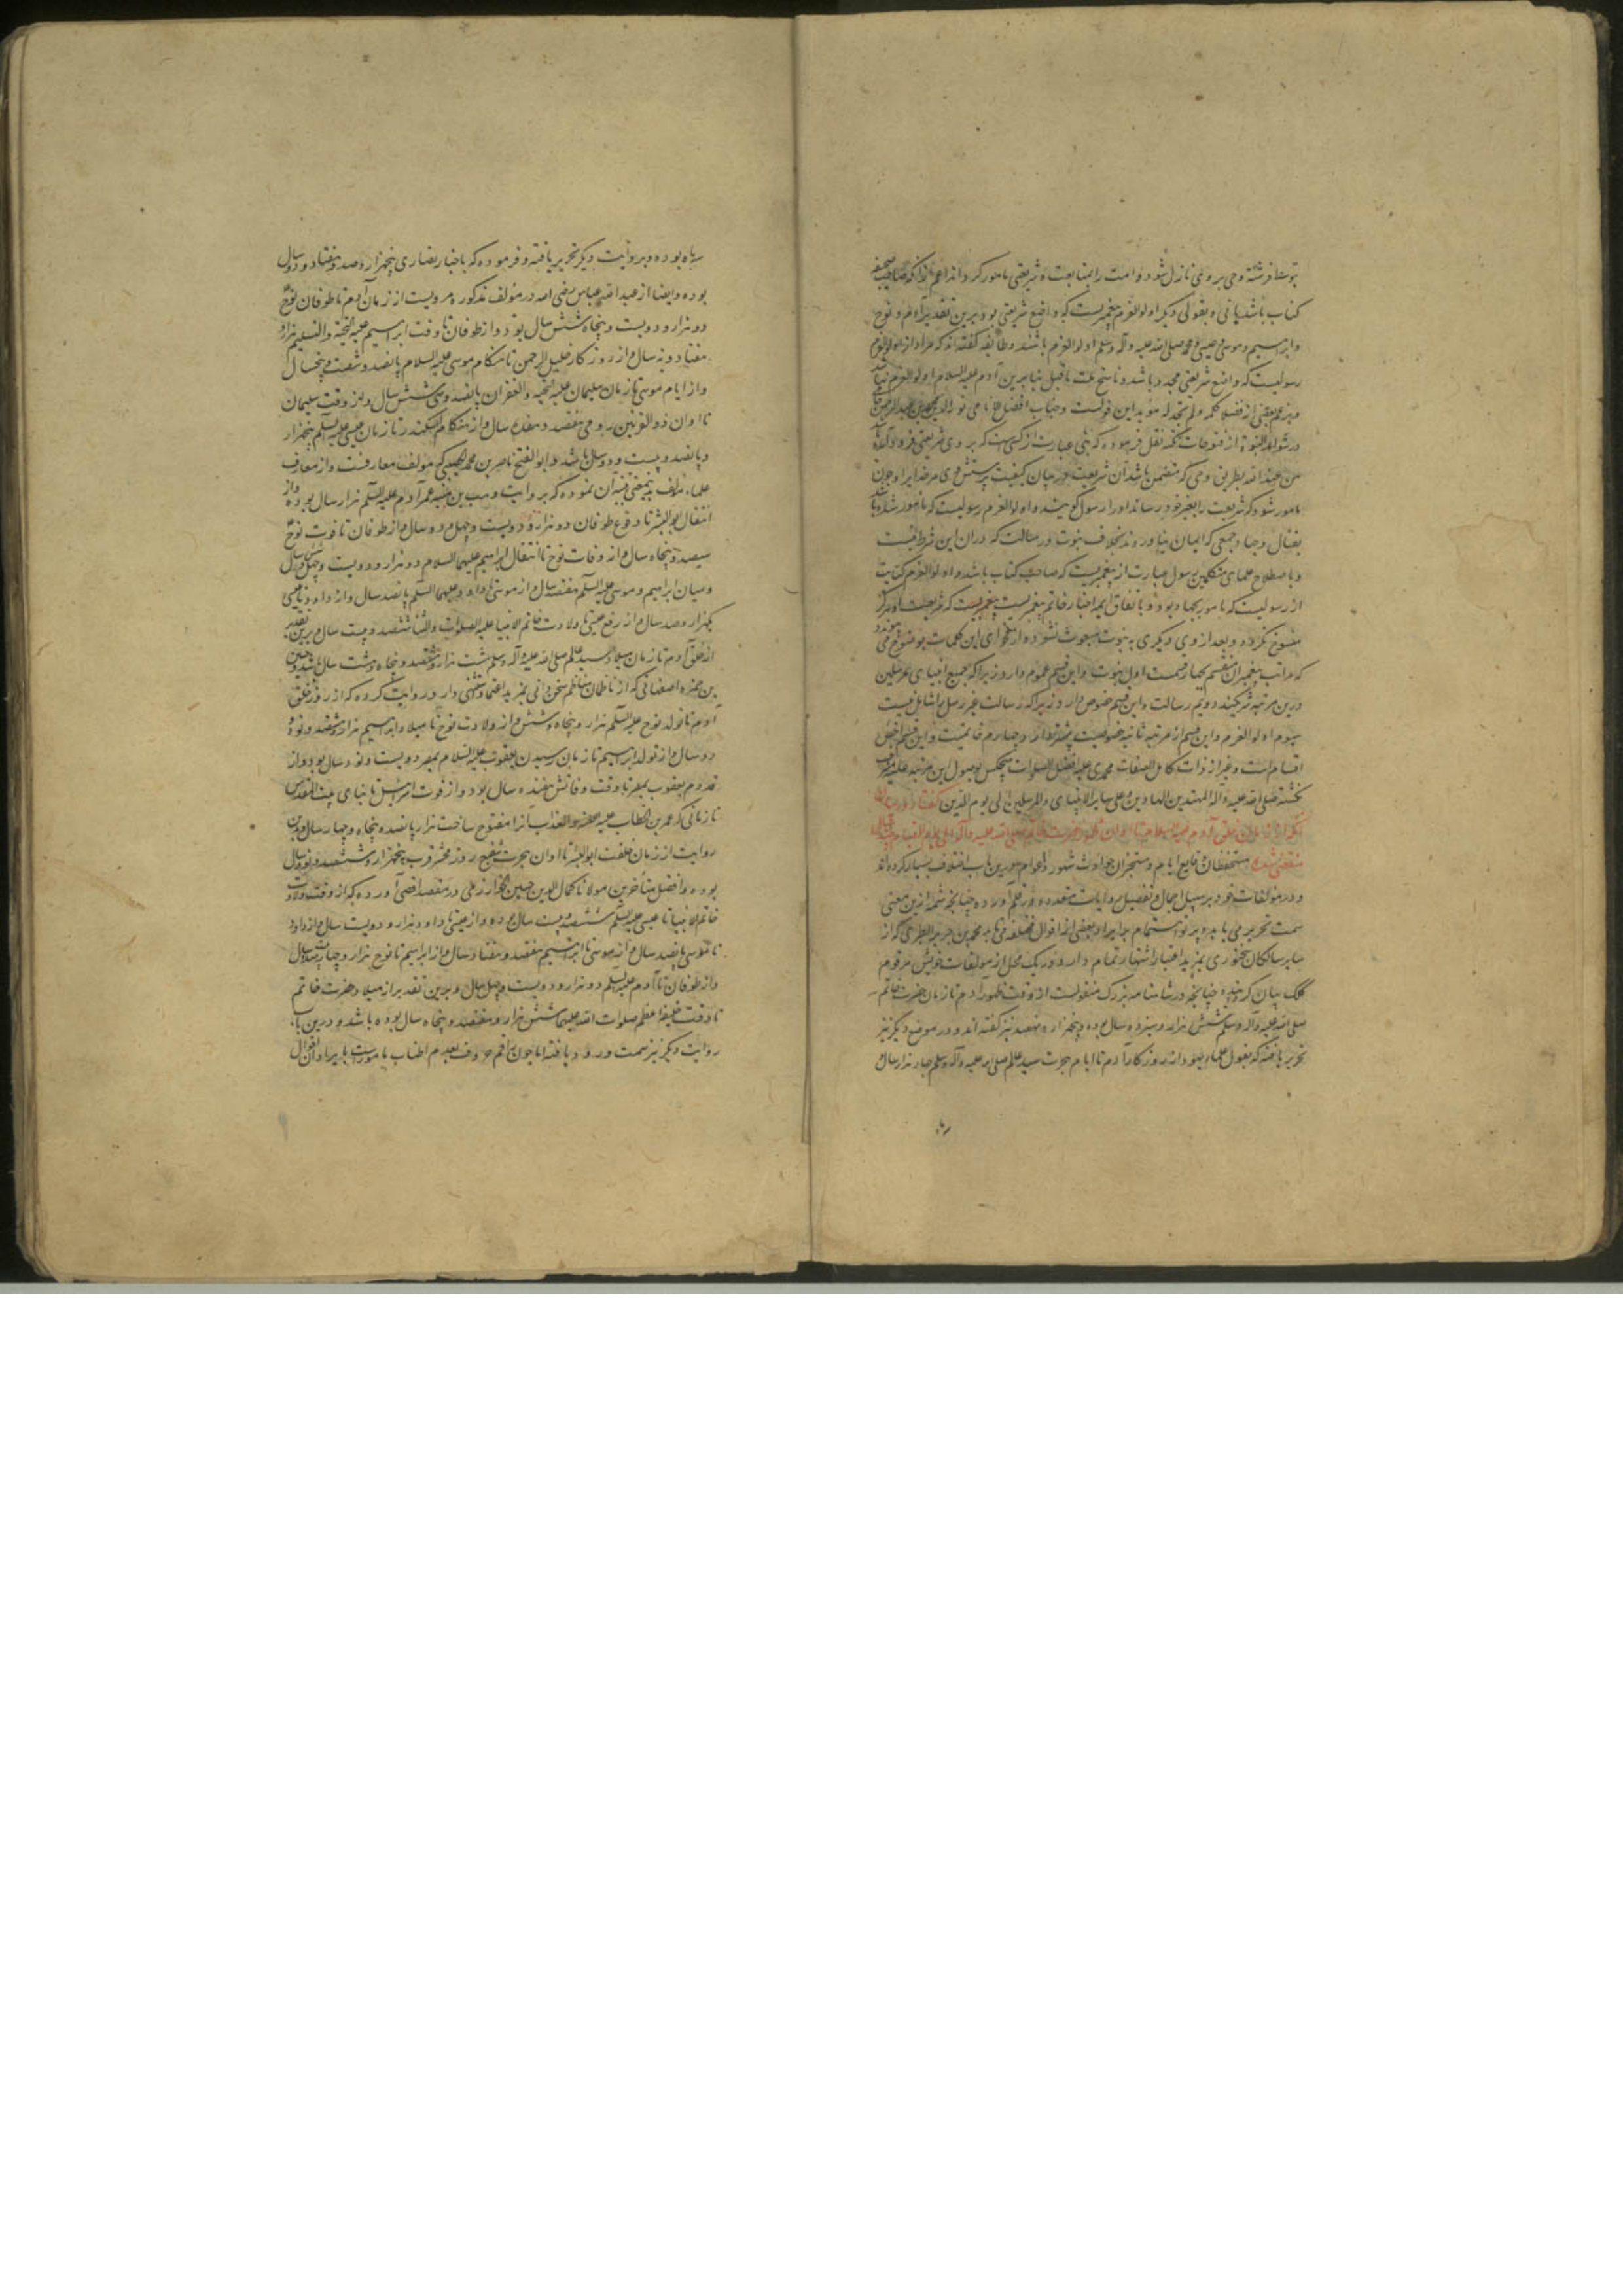 توسط فرشته وحی بروی نازل شود و امت را بمتابعت شریعتی مامور گرداند اعم از آنکه صاحب صحیفه
کتاب باشد یا نی و بقولی دیگر اولوالعزم پیغمبریست که واضع شریعتی بود و برین تقدیر آدم و نوح
و ابراهیم و موسی و عیسی و محمد صلی الله علیه و آله وسلم اولوالعزم باشند و طایفه گفته‌اند که مراد از اولوالعزم
رسولیست که واضع شریعتی مجدد باشد و ناسخ ملت ماقبل بنابرین آدم علیه السلام اولوالعزم نباشد
در شواهد النبوة از فتوحات مکیه نقل فرموده که نبی عبارت از کسیست که بروی شریعتی فرود آید
من عند الله بطریق وحی که متضمن باشد آن شریعت بر بیان کیفیت پرستش وی مر خدایرا و چون
مامور شود که شریعت را بغیر خود رساند او را رسول گویند و اولوالعزم رسولیست که مامور شده با
بقتال و جهاد جمعی که ایمان نیاوردند بخلاف نبوت و رسالت که در ان این شرط نیست
و باصطلاح علمای متکلمین رسول عبارت از پیغمبریست که صاحب کتاب باشد و اولوالعزم کنایت
از رسولیست که مامور بجهاد بود و باتفاق ایمه اخبار خاتم پیغمبریست که شریعت او هرگز
منسوخ نگردد و بعد از وی دیگری به نبوت مبعوث نشود از فحوای این کلمات بوضوح می پیوندد
که مراتب پیغمبران منقسم بچهار قسمست اول نبوت و این قسم عموم دارد زیرا که جمیع انبیای مرسلین
درین مرتبه شریکند دویم رسالت و این قسم خصوص دارد زیرا که رسالت غیر رسل را شامل نیست
سیوم اولوالعزم و این قسم از مرتبه ثانیه خصوصیت بیشتر دارد و چهارم خاتمیت و این قسم اخص
اقسام است و غیر از ذات کامل الصفات محمدی علیه افضل الصلوات هیچکس بوصول این مرتبه علیه مشرف
نگشته صلی الله علیه و آله المهتدین الهادین و علی سایر الانبیای والمرسلین الی یوم الدین گفتار در بیان
آنکه از زمان خلق آدم علیه السلام تا اوان ظهور حضرت خاتم صلی الله علیه و آله الی یوم القیام چند سال
منقضی شده مستحفظان وقایع ایام و مستخبران حوادث شهور و اعوام درین باب اختلاف بسیار کرده‌اند
و در مولفات خود بر سبیل اجمال و تفصیل روایات متعدده در قلم آورده چنانچه شمه ازین معنی
سمت تحریر می یابد و پرتو اهتمام بر ایراد بعضی از اقوال مختلفه می تابد محمد بن جریر الطبری که از
سایر سالکان سخنوری بمزید اعتبار اشتهار تمام دارد در یک محل از مولفات خویش مرقوم
کلک بیان گردانیده چنانچه در شاهنامه بزرگ منقولست از وقت ظهور آدم تا زمان حضرت خاتم
صلی الله علیه و آله وسلم شش هزار و سیزده سال بوده و پنجهزار و نهصد نیز گفته‌اند و در موضع دیگر نیز
تحریر یافته که بقول علماء یهود از روزگار آدم تا ایام هجرت سید عالم صلی الله علیه و آله وسلم چهار هزار سال و
بوده و بروایت دیگر تحریر یافته و فرموده که باخبار نصاری پنجهزار و صد و هفتاد و دو سال
بوده و ایضا از عبد الله عباس رضی الله در مولف مذکوره مرویست از زمان آدم تا طوفان نوح
دو هزار و دویست و پنجاه شش سال بود و از طوفان تا وقت ابراهیم علیه التحیة والتسلیم هزار و
هفتاد و نه سال و از روزگار خلیل الرحمن تا هنگام موسی علیه السلام پانصد و شصت و پنجسال
و از ایام موسی تا زمان سلیمان علیه التحیة والغفران پانصد و سی شش سال و از وقت سلیمان
تا اوان ذوالقرنین رومی هفتصد و هفده سال و از هنگام اسکندر تا زمان عیسی علیه السلم پنجهزار
و پانصد و بیست و دو سال باشد و ابوالفتح ناصر بن محمد مولف معارفست و از معارف
علماء مولف بدینمعنی تنبیه آن نموده که بروایت وهب بن منبه عمر آدم علیه السلم هزار سال بوده و از
انتقال ابوالبشر تا وقوع طوفان دو هزار و دویست و چهل و دو سال و از طوفان تا فوت نوح
سیصد و پنجاه سال و از وفات نوح تا انتقال ابراهیم علیهما السلام دو هزار و دویست و چهل و شش سال
و میان ابراهیم و موسی علیه السلم هفتصد سال و از موسی تا داود علیهما السلم پانصد سال و از داود تا عیسی
یکهزار و صد سال و از رفع عیسی تا ولادت خاتم الانبیا علیه الصلوات والثنا ششصد و بیست سال و برین تقدیر
از خلق آدم تا زمان میلاد سید عالم صلی الله علیه و آله وسلم هشت هزار و ششصد و پنجاه و هشت سال باشد و حسین
بن حمزه اصفهانی که از ناظمان مناظم سخن دانی بمزید اعتماد مستثنی دارد روایت کرده که از روز خلق
آدم تا تولد نوح علیه السلم هزار و پنجاه و شش و از ولادت نوح تا میلاد ابراهیم هزار و هشتصد و نود و
دو سال و از تولد ابراهیم تا زمان رسیدن یعقوب علیه السلام بمصر دویست و نود سال بود و از
قدوم یعقوب بمصر تا وقت وفاتش هفده سال بود و از فوت اسرائیل تا بنای بیت المقدس
تا زمانی که عمر بن الخطاب علیه آنرا مفتوح ساخت هزار پانصد و پنجاه و چهار سال و بدین
روایت از زمان خلقت ابوالبشر تا اوان هجرت شفیع روز محشر قرب پنجهزار و ششصد و نود سال
بوده و افضل متأخرین مولانا کمال الدین حسین خوارزمی در مقصد اقصی آورده که از وقت ولادت
خاتم الانبیا تا عیسی علیه السلم ششصد و بیست سال بوده و از عیسی تا داود هزار و دویست سال و از داود
تا موسی پانصد سال و از موسی تا ابراهیم هفتصد و هفتاد سال و از ابراهیم تا نوح هزار و چهارصد سال
و از طوفان تا آدم علیه السلم دو هزار و دویست و چهل سال و برین تقدیر از میلاد حضرت خاتم
تا وقت خلیفه اعظم صلوات الله علیهما شش هزار و هفتصد و پنجاه سال بوده باشد و درین باب
روایت دیگر نیز سمت ورود یافته اما چون راقم حروف بعدم اطناب مامورست بایراد آن اقوال